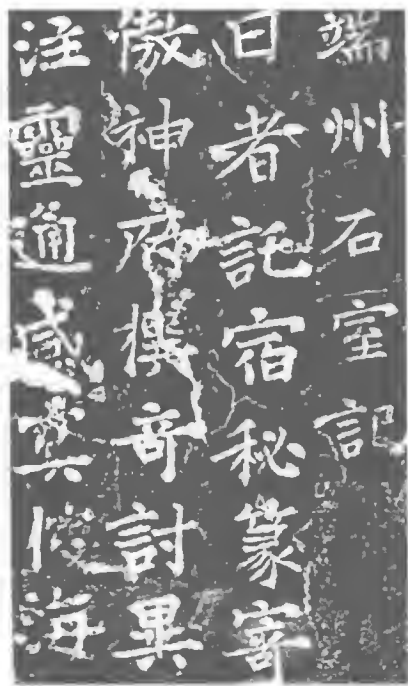 端州石室記
日者託宿秘篆寄
傲神府撰奇討異
注靈通感寘懷海